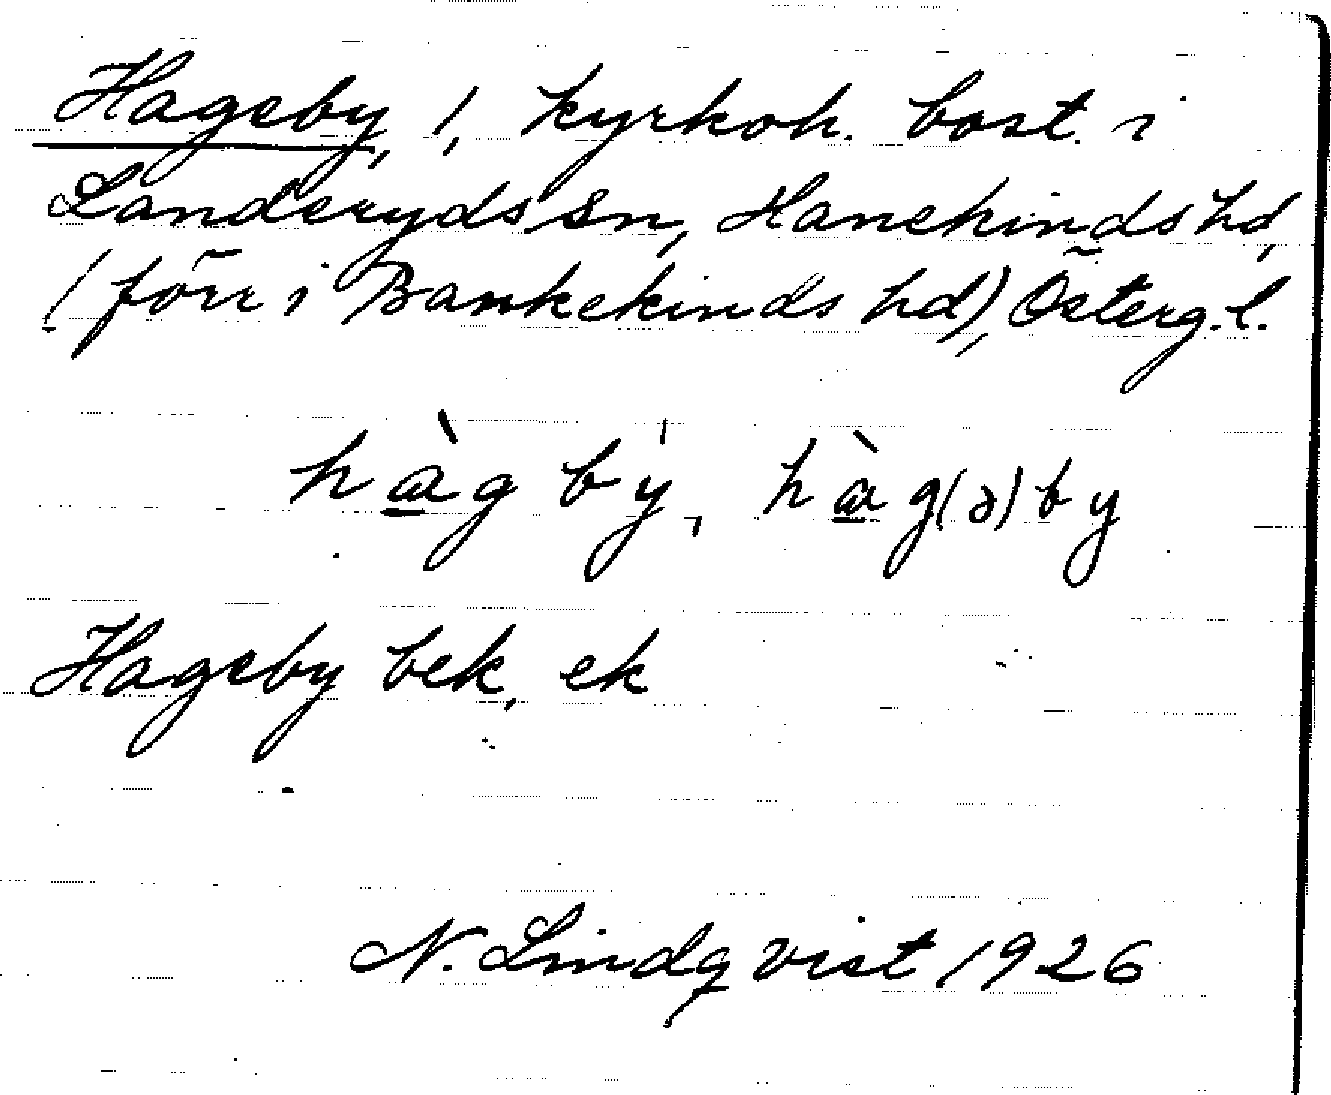 Hageby, 1, kyrkoh. bost. i
Landeryds sn, Hanekinds hd,
(förr i Bankekinds hd), Österg.l.
hàg bý, hàg(ə)by
Hageby bek, ek
N. Lindqvist 1926